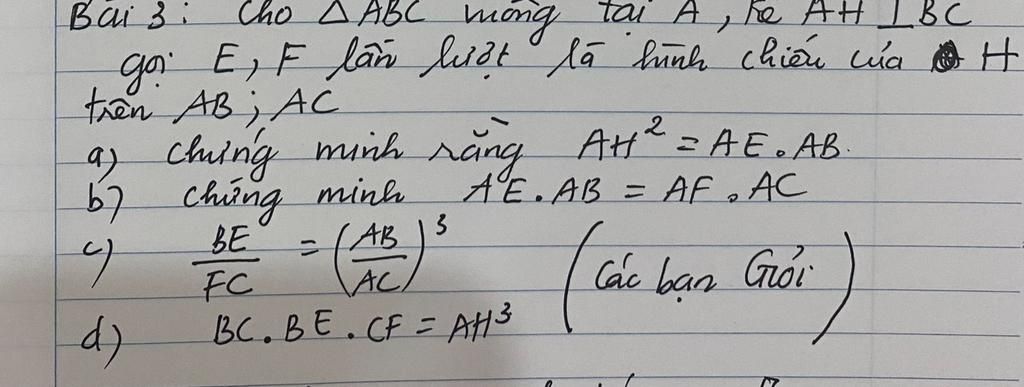 Bài 3: Cho △ABC vuông tại A, kẻ AH ⊥ BC
gọi E, F lần lượt là hình chiếu của H
trên AB; AC
a) chứng minh rằng AH² = AE.AB.
b) chứng minh AE.AB = AF.AC
c) BE/FC = (AB/AC)³ (Các bạn Giỏi)
d) BC.BE.CF = AH³